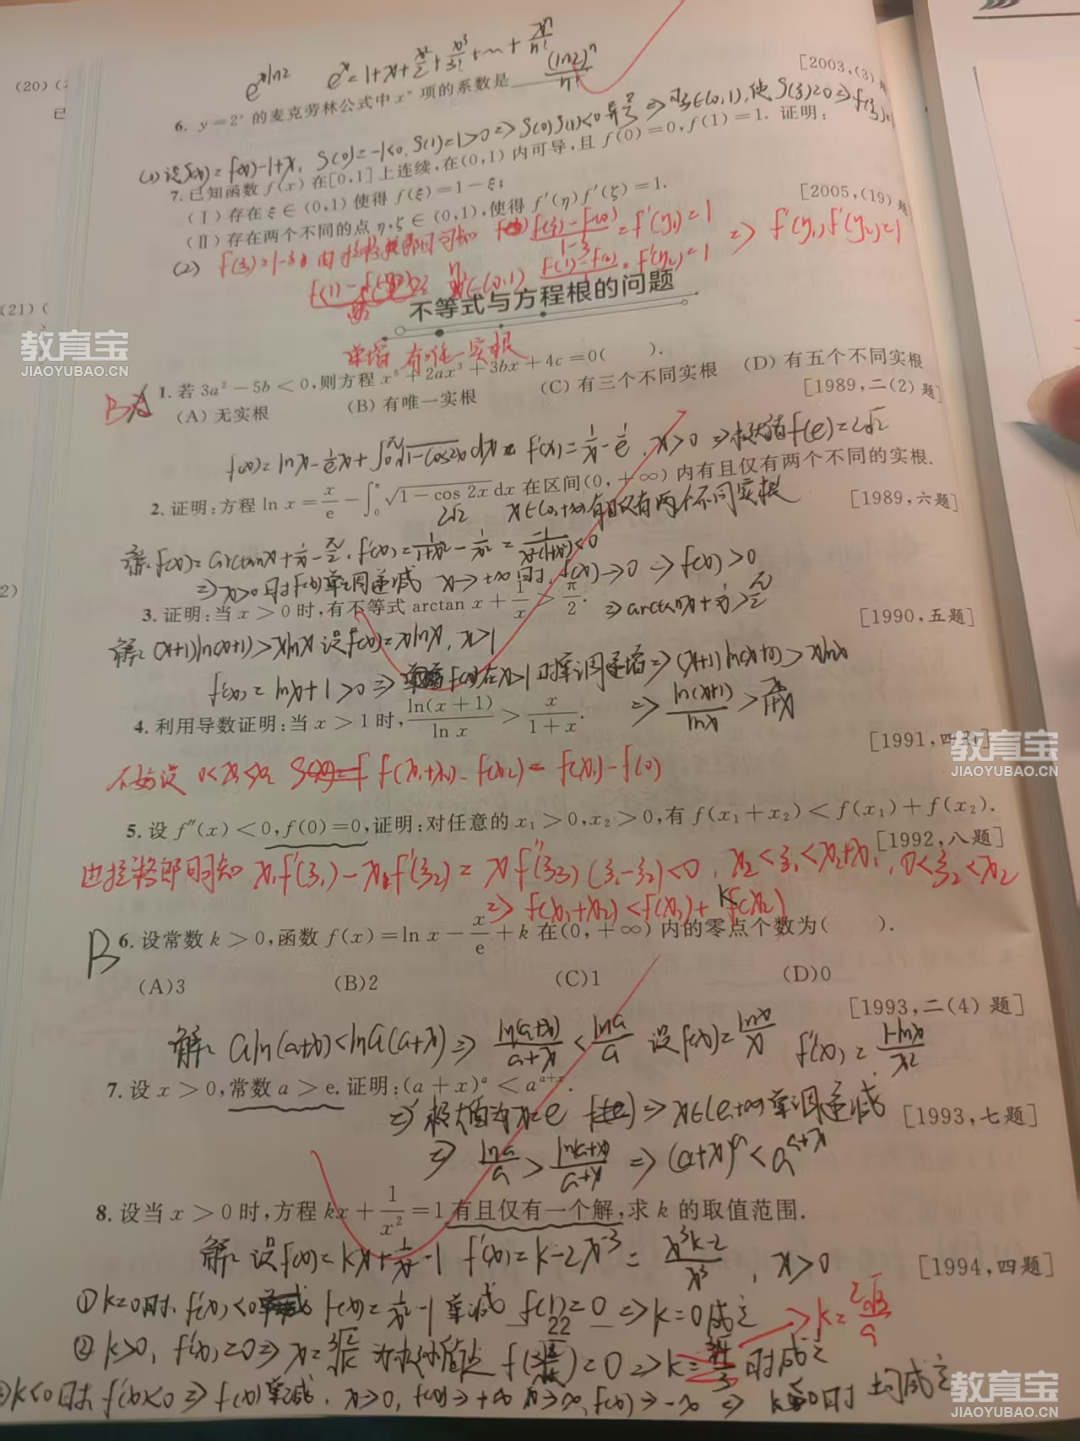 (20)
e^{xln2} e^x=1+x+\frac{x^2}{2}+\frac{x^3}{3!}+…+\frac{x^n}{n!}
[2003,(3)
6. y=2^x 的麦克劳林公式中 x^n 项的系数是 \frac{(ln2)^n}{n!}
7. 已知函数 f(x) 在[0,1]上连续,在(0,1)内可导,且 f(0)=0,f(1)=1. 证明:
(Ⅰ)存在 ξ∈(0,1)使得 f(ξ)=1-ξ;
(Ⅱ)存在两个不同的点 η,ζ∈(0,1),使得 f′(η)f′(ζ)=1.
[2005,(19)题
(2) f(ξ)=1-ξ
(21)
不等式与方程根的问题
单增 有唯一实根
教育宝
JIAOYUBAO.CN
B
1. 若 3a²-5b<0,则方程 x⁵+2ax³+3bx+4c=0( ).
(A) 无实根 (B) 有唯一实根 (C) 有三个不同实根 (D) 有五个不同实根
[1989,二(2)题]
f(x)=lnx-\frac{1}{e}x+∫_0^π\sqrt{1-cos2x}dx f′(x)=\frac{1}{x}-\frac{1}{e}, x>0 ⇒极大值f(e)=2√2
2. 证明:方程 ln x=\frac{x}{e}-∫_0^π\sqrt{1-cos 2x}dx 在区间(0,+∞)内有且仅有两个不同的实根.
2√2 x∈(0,+∞)有且仅有两个不同实根
[1989,六题]
解: f(x)=arctanx+\frac{1}{x}-\frac{π}{2}, f′(x)=\frac{1}{1+x²}-\frac{1}{x²}=\frac{-1}{x²(1+x²)}<0
⇒x>0时f(x)单调递减 x→+∞时, f(x)→0 ⇒f(x)>0
3. 证明:当 x>0 时,有不等式 arctan x+\frac{1}{x}>\frac{π}{2}.
⇒arctanx+\frac{1}{x}>\frac{π}{2}
[1990,五题]
解: (x+1)ln(x+1)>xlnx 设f(x)=xlnx, x>1
f′(x)=lnx+1>0 ⇒ f(x)在x>1时单调递增⇒(x+1)ln(x+1)>xlnx
4. 利用导数证明:当 x>1 时,\frac{ln(x+1)}{ln x}>\frac{x}{1+x}.
⇒\frac{ln(x+1)}{lnx}>\frac{x}{1+x}
[1991,四
教育宝
JIAOYUBAO.CN
不妨设 f(x₁+x₂)-f(x₂)=f(x₁)-f(0)
5. 设 f″(x)<0,f(0)=0,证明:对任意的 x₁>0,x₂>0,有 f(x₁+x₂)<f(x₁)+f(x₂).
[1992,八题]
由拉格朗日可知 x₁f′(ξ₁)-x₁f′(ξ₂)=x₁f″(ξ₃)(ξ₁-ξ₂)<0, x₂<ξ₁<x₂+x₁, 0<ξ₂<x₂
⇒f(x₁+x₂)<f(x₁)+f(x₂)
B
6. 设常数 k>0,函数 f(x)=ln x-\frac{x}{e}+k 在(0,+∞)内的零点个数为( ).
(A)3 (B)2 (C)1 (D)0
[1993,二(4)题]
解: aln(a+x)<lna(a+x)⇒\frac{ln(a+x)}{a+x}<\frac{lna}{a} 设f(x)=\frac{lnx}{x} f′(x)=\frac{1-lnx}{x²}
7. 设 x>0,常数 a>e.证明:(a+x)^a<a^{a+x}.
⇒极大值为x=e ⇒x∈(e,+∞)单调递减
[1993,七题]
⇒\frac{lna}{a}>\frac{ln(a+x)}{a+x} ⇒(a+x)^a<a^{a+x}
8. 设当 x>0 时,方程 kx+\frac{1}{x²}=1 有且仅有一个解,求 k 的取值范围.
解: 设f(x)=kx+\frac{1}{x²}-1 f′(x)=k-2x^{-3}=\frac{x³k-2}{x³}, x>0
[1994,四题]
①k=0时, f′(x)<0 f(x)=\frac{1}{x²}-1 单减 f(1)=0 ⇒k=0成立 ⇒k=\frac{2√3}{9}
22
②k>0, f′(x)=0⇒x=\sqrt[3]{\frac{2}{k}} 为极小值点 时成立
③k<0时 f′(x)<0⇒f(x)单减, x→0, f(x)→+∞ x→∞, f(x)→-∞ ⇒ 时 均成立
教育宝
JIAOYUBAO.CN